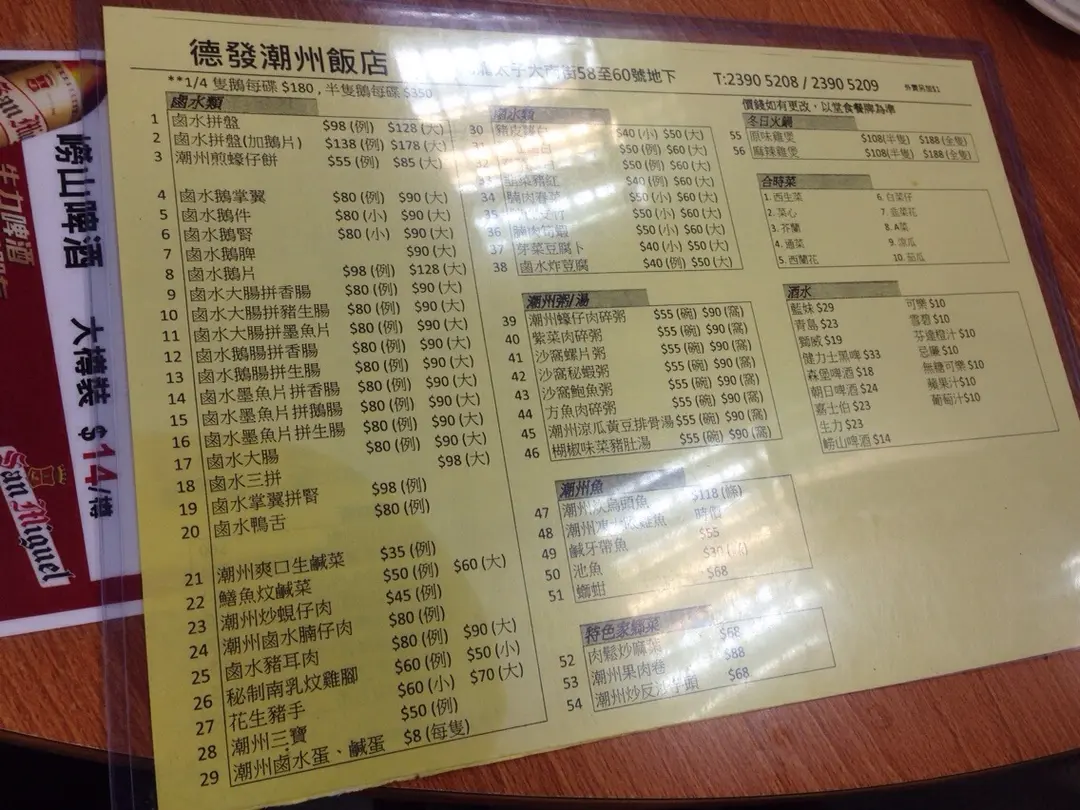 德發潮州飯店
太子大南街58至60號地下
T:2390 5208 / 2390 5209
外賣另加$1
**1/4 隻鵝每碟 $180 , 半隻鵝每碟 $350
價錢如有更改，以堂食餐牌為準
鹵水類
1 鹵水拼盤 $98 (例) $128 (大)
2 鹵水拼盤(加鵝片) $138 (例) $178 (大)
3 潮州煎蠔仔餅 $55 (例) $85 (大)
4 鹵水鵝掌翼 $80 (例) $90 (大)
5 鹵水鵝件 $80 (小) $90 (大)
6 鹵水鵝腎 $80 (小) $90 (大)
7 鹵水鵝髀 $90 (大)
8 鹵水鵝片 $98 (例) $128 (大)
9 鹵水大腸拼香腸 $80 (例) $90 (大)
10 鹵水大腸拼豬生腸 $80 (例) $90 (大)
11 鹵水大腸拼墨魚片 $80 (例) $90 (大)
12 鹵水鵝腸拼香腸 $80 (例) $90 (大)
13 鹵水鵝腸拼生腸 $80 (例) $90 (大)
14 鹵水墨魚片拼香腸 $80 (例) $90 (大)
15 鹵水墨魚片拼鵝腸 $80 (例) $90 (大)
16 鹵水墨魚片拼生腸 $80 (例) $90 (大)
17 鹵水大腸 $80 (例) $90 (大)
18 鹵水三拼 $98 (大)
19 鹵水掌翼拼腎 $98 (例)
20 鹵水鴨舌 $80 (例)
21 潮州爽口生鹹菜 $35 (例)
22 鱔魚炆鹹菜 $50 (例) $60 (大)
23 潮州炒蜆仔肉 $45 (例)
24 潮州鹵水腩仔肉 $80 (例)
25 鹵水豬耳肉 $80 (例) $90 (大)
26 秘制南乳炆雞腳 $60 (例) $50 (小)
27 花生豬手 $60 (小) $70 (大)
28 潮州三寶 $50 (例)
29 潮州鹵水蛋、鹹蛋 $8 (每隻)
鹵水類
30 $40 (小) $50 (大)
$50 (例) $60 (大)
32 $50 (例) $60 (大)
33 韮菜豬紅 $40 (例) $60 (大)
34 腩肉春菜 $50 (小) $60 (大)
35 $50 (小) $60 (大)
36 腩肉筍蝦 $50 (小) $60 (大)
37 芽菜豆腐卜 $40 (小) $50 (大)
38 鹵水炸豆腐 $40 (例) $50 (大)
潮州粥/湯
39 潮州蠔仔肉碎粥 $55 (碗) $90 (窩)
40 紫菜肉碎粥 $55 (碗) $90 (窩)
41 沙窩螺片粥 $55 (碗) $90 (窩)
42 沙窩秘蝦粥 $55 (碗) $90 (窩)
43 沙窩鮑魚粥 $55 (碗) $90 (窩)
44 方魚肉碎粥 $55 (碗) $90 (窩)
45 潮州涼瓜黃豆排骨湯 $55 (碗) $90 (窩)
46 楜椒味菜豬肚湯 $55 (碗) $90 (窩)
潮州魚
47 潮州炊烏頭魚 $118 (條)
48 潮州 魚 時價
49 鹹牙帶魚 $55
50 池魚 $30
51 螄蚶 $68
特色家鄉菜
52 肉鬆炒麻葉 $68
53 潮州果肉卷 $88
54 潮州炒反沙芋頭 $68
冬日火鍋
55 原味雞煲 $108(半隻) $188 (全隻)
56 麻辣雞煲 $108(半隻) $188 (全隻)
合時菜
1. 西生菜 6. 白菜仔
2. 菜心 7. 韮菜花
3. 芥蘭 8. A菜
4. 通菜 9. 涼瓜
5. 西蘭花 10. 茄瓜
酒水
藍妹 $29 可樂 $10
青島 $23 雪碧 $10
獅威 $19 芬達橙汁 $10
健力士黑啤 $33 忌廉 $10
森堡啤酒 $18 無糖可樂 $10
朝日啤酒 $24 蘋果汁$10
嘉士伯 $23 葡萄汁$10
生力 $23
嶗山啤酒 $14
嶗山啤酒 大樽裝 $14/樽
生力啤酒
San Miguel